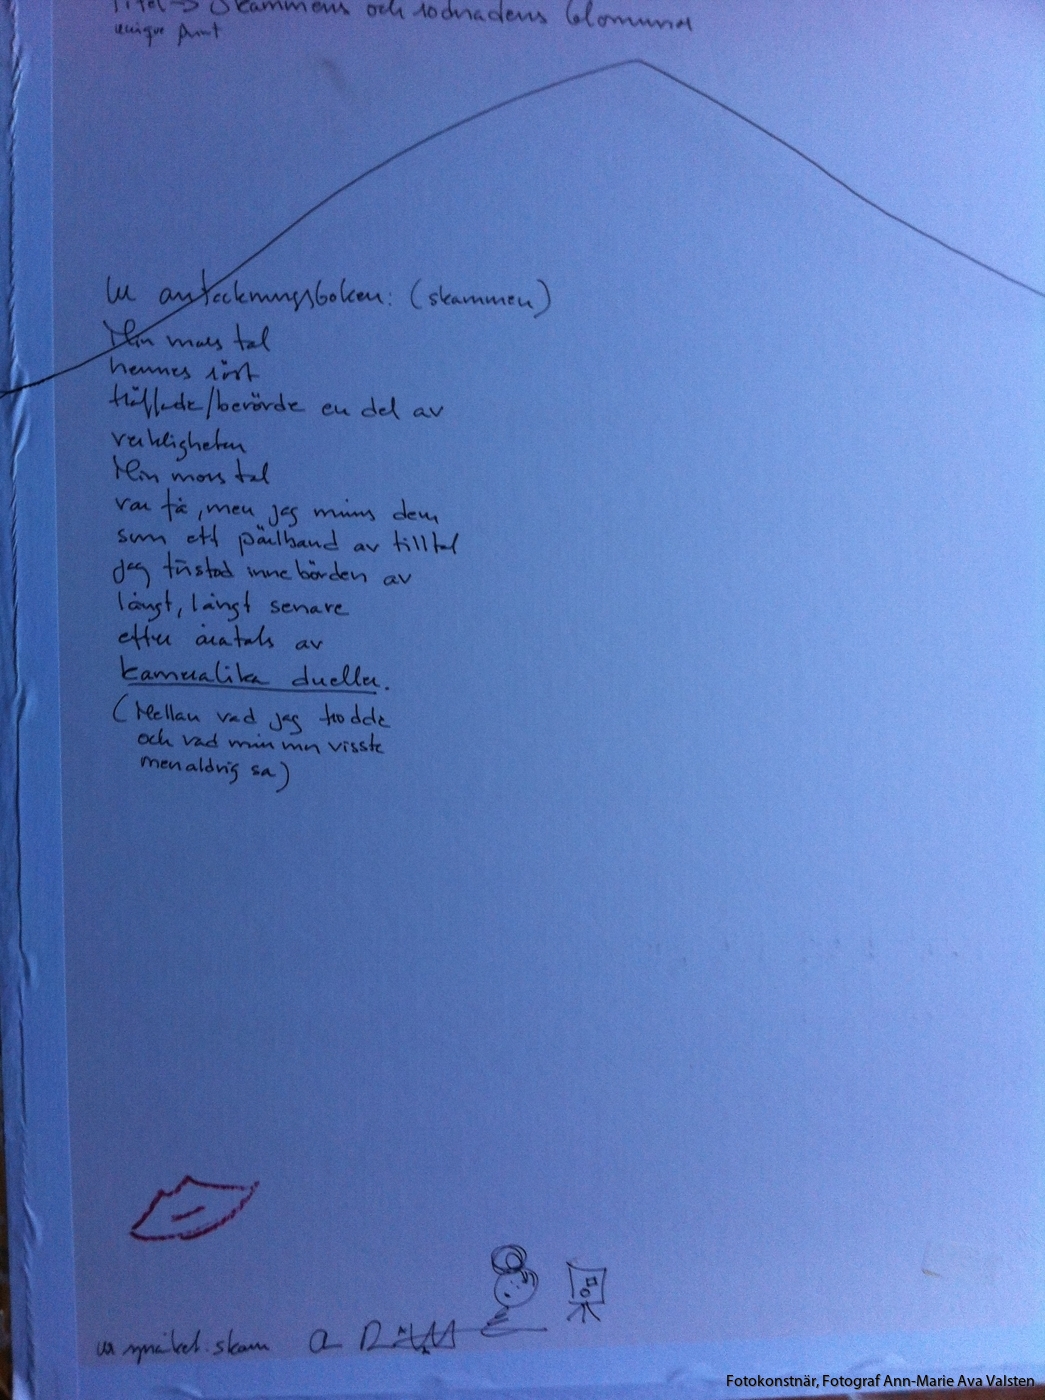 Titel → Skammens och rodnadens blommor
unique print
Ur anteckningsboken: (skammen)
Min mors tal
hennes röst
träffade/berörde en del av
verkligheten
Min mors tal
var få, men jag minns dem
som ett pärlband av tilltal
jag förstod innebörden av
långt, långt senare
efter åratals av
kameralika dueller.
(Mellan vad jag trodde
och vad min mor visste
men aldrig sa)
ur språket: skam
Fotokonstnär, Fotograf Ann-Marie Ava Valsten